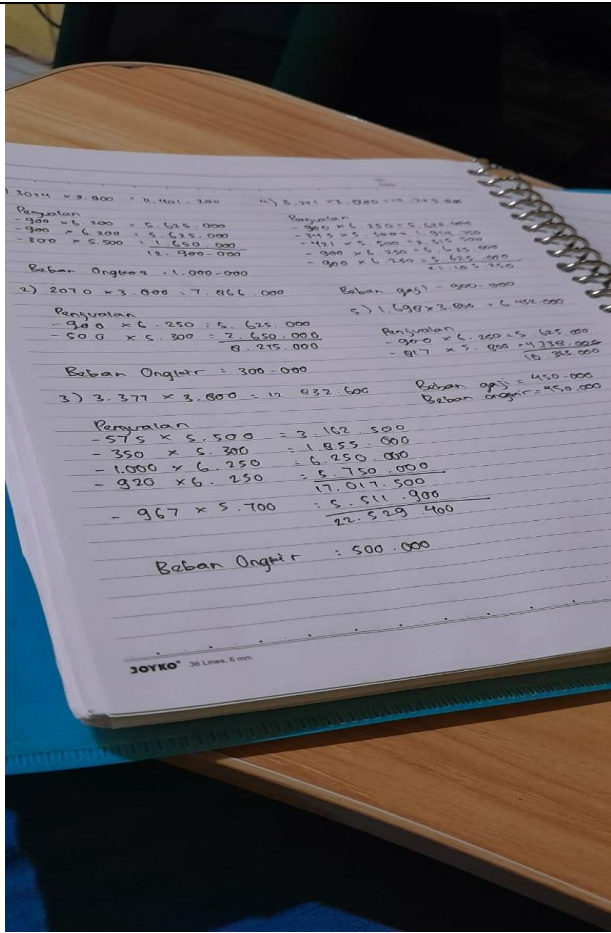 3024 × 3.800 = 11.401.200
Penjualan
- 900 × 6.200 = 5.625.000
- 900 × 6.200 = 5.625.000
- 300 × 5.500 = 1.650.000
12.900.000
Beban Ongkir : 1.000.000
2) 2070 × 3.800 = 7.866.000
Penjualan
- 900 × 6.250 = 5.625.000
- 500 × 5.300 = 2.650.000
8.275.000
Beban Ongkir = 300.000
3) 3.377 × 3.800 = 12.832.600
Penjualan
- 575 × 5.500 = 3.162.500
- 350 × 5.300 = 1.855.000
- 1.000 × 6.250 = 6.250.000
- 920 × 6.250 = 5.750.000
17.017.500
- 967 × 5.700 : 5.511.900
22.529.400
Beban Ongkir : 500.000
4)
Penjualan
- 900 × 6.250 = 5.625.000
- 345 × 5.500
- 421 × 5.500 = 2.315.500
- 900 × 6.250 = 5.625.000
- 900 × 6.250 = 5.625.000
21.105.750
Beban gaji = 900.000
5) 1.698 × 3.800 = 6.452.000
Penjualan
- 900 × 6.250 = 5.625.000
- 817 × 5.800 = 4.738.000
10.363.000
Beban gaji = 450.000
Beban ongkir = 450.000
JOYKO 36 Lines, 6 mm